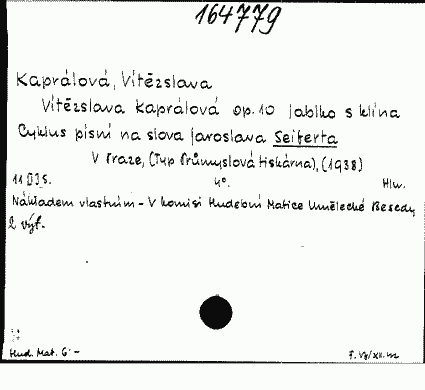 164779
Kaprálová, Vítězslava
Vítězslava Kaprálová op. 10 Jablko s klína
Cyklus písní na slova Jaroslava Seiferta
V Praze, (Typ Průmyslová tiskárna), (1938)
11 s. 4°. Hlw.
Nákladem vlastním - V komisi Hudební Matice Umělecké Besedy
2 výt.
Hud. Mat. G -